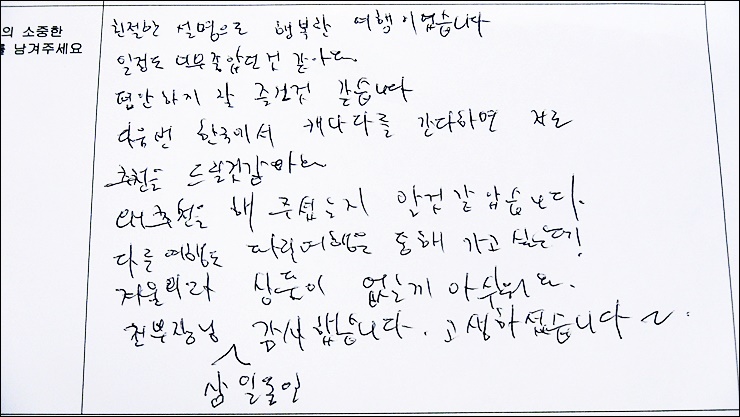 의 소중한
를 남겨주세요
친절한 설명으로 행복한 여행이었습니다
일정도 너무 좋았던것 같아요
편안하게 잘 즐긴것 같습니다
다음번 한국에서 캐나다를 간다하면 저도
추천을 드릴것같아요
왜 추천을 해 주셨는지 안것 같았습니다.
다른여행도 파라여행을 통해 가고 싶은데!
겨울이라 상품이 없는게 아쉬워요.
천부장님 감사했습니다. 고생하셨습니다 ~.
삼일동안